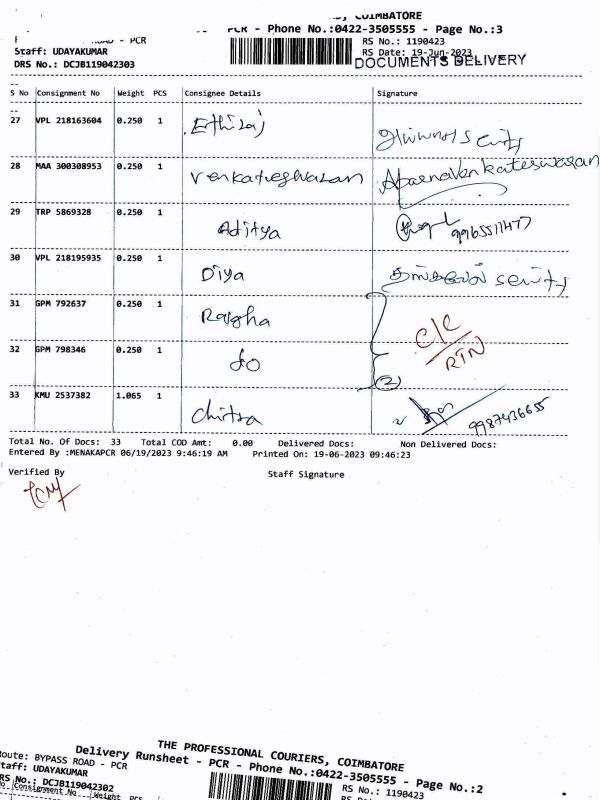 COIMBATORE
PCR - Phone No.:0422-3505555 - Page No.:3
ROAD - PCR
Staff: UDAYAKUMAR
RS No.: 1190423
RS Date: 19-Jun-2023
DRS No.: DCJB119042303
DOCUMENTS DELIVERY
S No Consignment No Weight PCS Consignee Details Signature
27 VPL 218163604 0.250 1 Ethiraj
28 MAA 300308953 0.250 1 Venkateshwaran Aparnavenkateswaran
29 TRP 5869328 0.250 1 Aditya 9965511477
30 VPL 218195935 0.250 1 Diya
31 GPM 792637 0.250 1 Raigha C/C
32 GPM 798346 0.250 1 do (2) RTN
33 KMU 2537382 1.065 1 Chitra 9987436655
Total No. Of Docs: 33 Total COD Amt: 0.00 Delivered Docs: Non Delivered Docs:
Entered By :MENAKAPCR 06/19/2023 9:46:19 AM Printed On: 19-06-2023 09:46:23
Verified By Staff Signature
THE PROFESSIONAL COURIERS, COIMBATORE
Delivery Runsheet - PCR - Phone No.:0422-3505555 - Page No.:2
Route: BYPASS ROAD - PCR
Staff: UDAYAKUMAR
RS No.: 1190423
RS No.: DCJB119042302
Consignment No Weight PCS